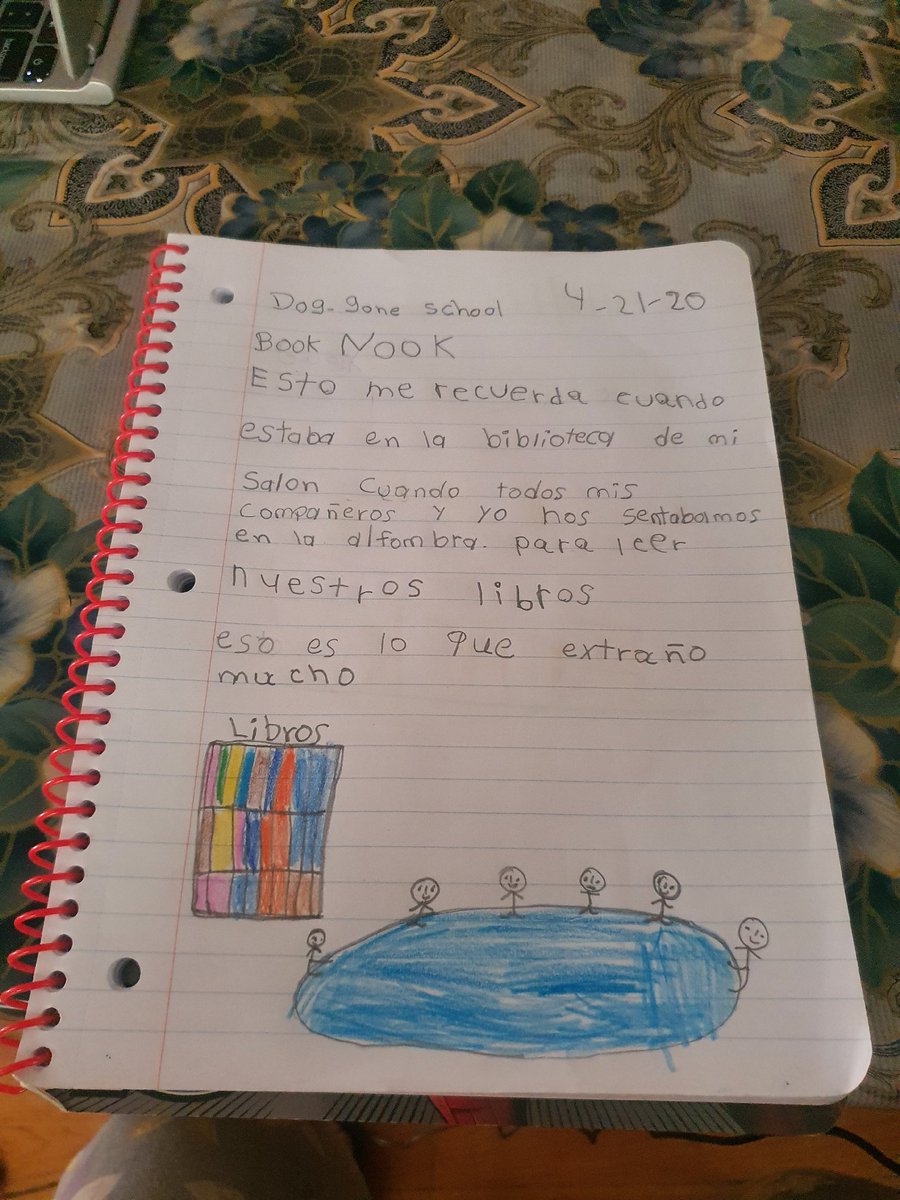 Dog-gone school 4-21-20
Book Nook
Esto me recuerda cuando
estaba en la biblioteca de mi
Salon cuando todos mis
compañeros y yo nos sentabamos
en la alfombra. para leer
nuestros libros
eso es lo que extraño
mucho
Libros